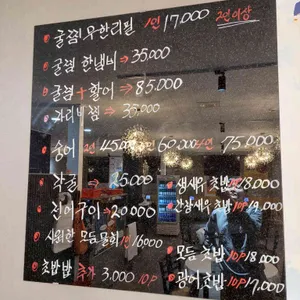 굴찜 무한리필 1인 17,000 2인이상
굴찜 한냄비 ⇒ 35,000
굴찜 + 활어 ⇒ 85,000
가리비찜 ⇒ 35,000
숭어 2인 45,000 3인 60,000 4인 75,000
석굴 ⇒ 25,000
생새우 초밥 18,000
전어구이 ⇒ 20,000
간장새우 초밥 10P 19,000
시원한 모듬물회 1인 16000
모듬 초밥 10P 18,000
초밥밥 추가 3,000 10P
광어초밥 10P 17,000